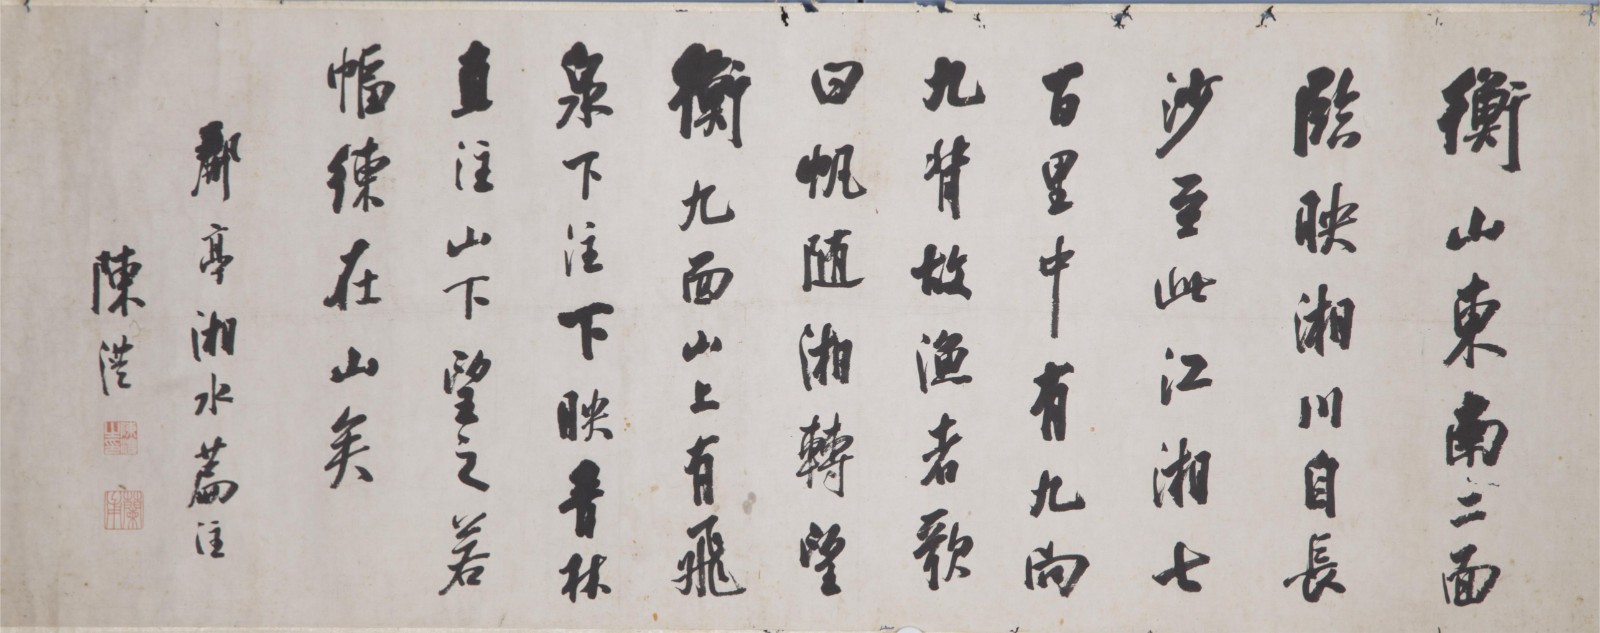 衡山東南二面
臨映湘川自長
沙至此江湘七
百里中有九向
九背故漁者歌
曰帆隨湘轉望
衡九面山上有飛
泉下注下映青林
直注山下望之若
幅練在山矣
酈亭湘水篇注
陳澧